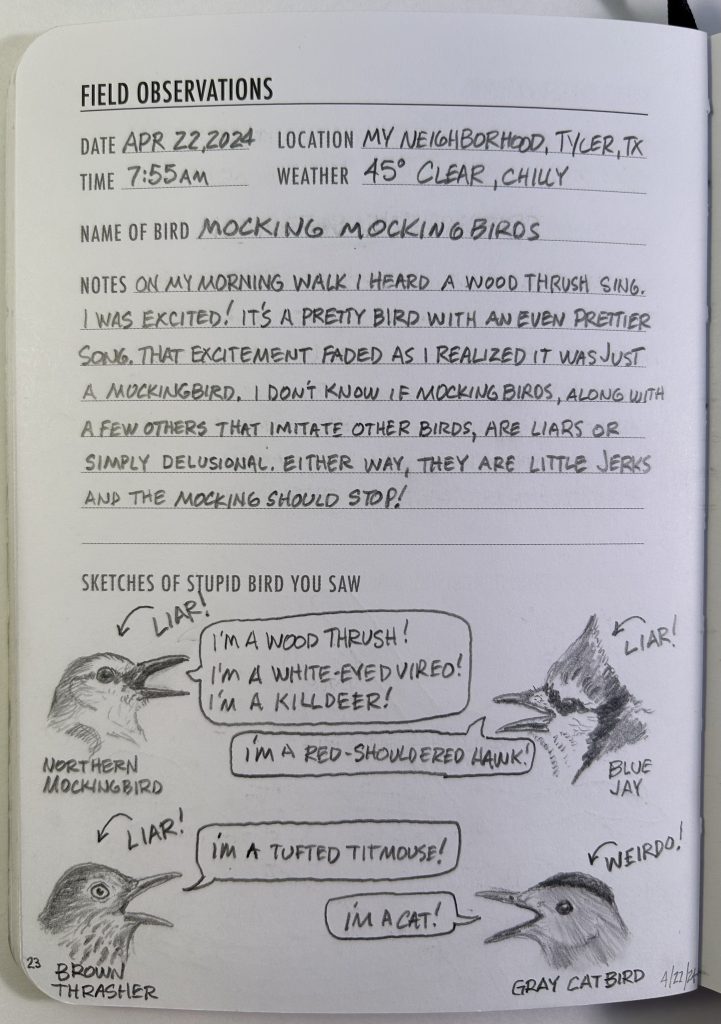 FIELD OBSERVATIONS
DATE APR 22, 2024 LOCATION MY NEIGHBORHOOD, TYLER, TX
TIME 7:55AM WEATHER 45° CLEAR, CHILLY
NAME OF BIRD MOCKING MOCKINGBIRDS
NOTES ON MY MORNING WALK I HEARD A WOOD THRUSH SING.
I WAS EXCITED! IT'S A PRETTY BIRD WITH AN EVEN PRETTIER
SONG. THAT EXCITEMENT FADED AS I REALIZED IT WAS JUST
A MOCKINGBIRD. I DON'T KNOW IF MOCKINGBIRDS, ALONG WITH
A FEW OTHERS THAT IMITATE OTHER BIRDS, ARE LIARS OR
SIMPLY DELUSIONAL. EITHER WAY, THEY ARE LITTLE JERKS
AND THE MOCKING SHOULD STOP!
SKETCHES OF STUPID BIRD YOU SAW
LIAR!
I'M A WOOD THRUSH!
I'M A WHITE-EYED VIREO!
I'M A KILLDEER!
NORTHERN
MOCKINGBIRD
LIAR!
I'M A RED-SHOULDERED HAWK!
BLUE
JAY
LIAR!
I'M A TUFTED TITMOUSE!
BROWN
THRASHER
WEIRDO!
I'M A CAT!
GRAY CATBIRD
23
4/22/24